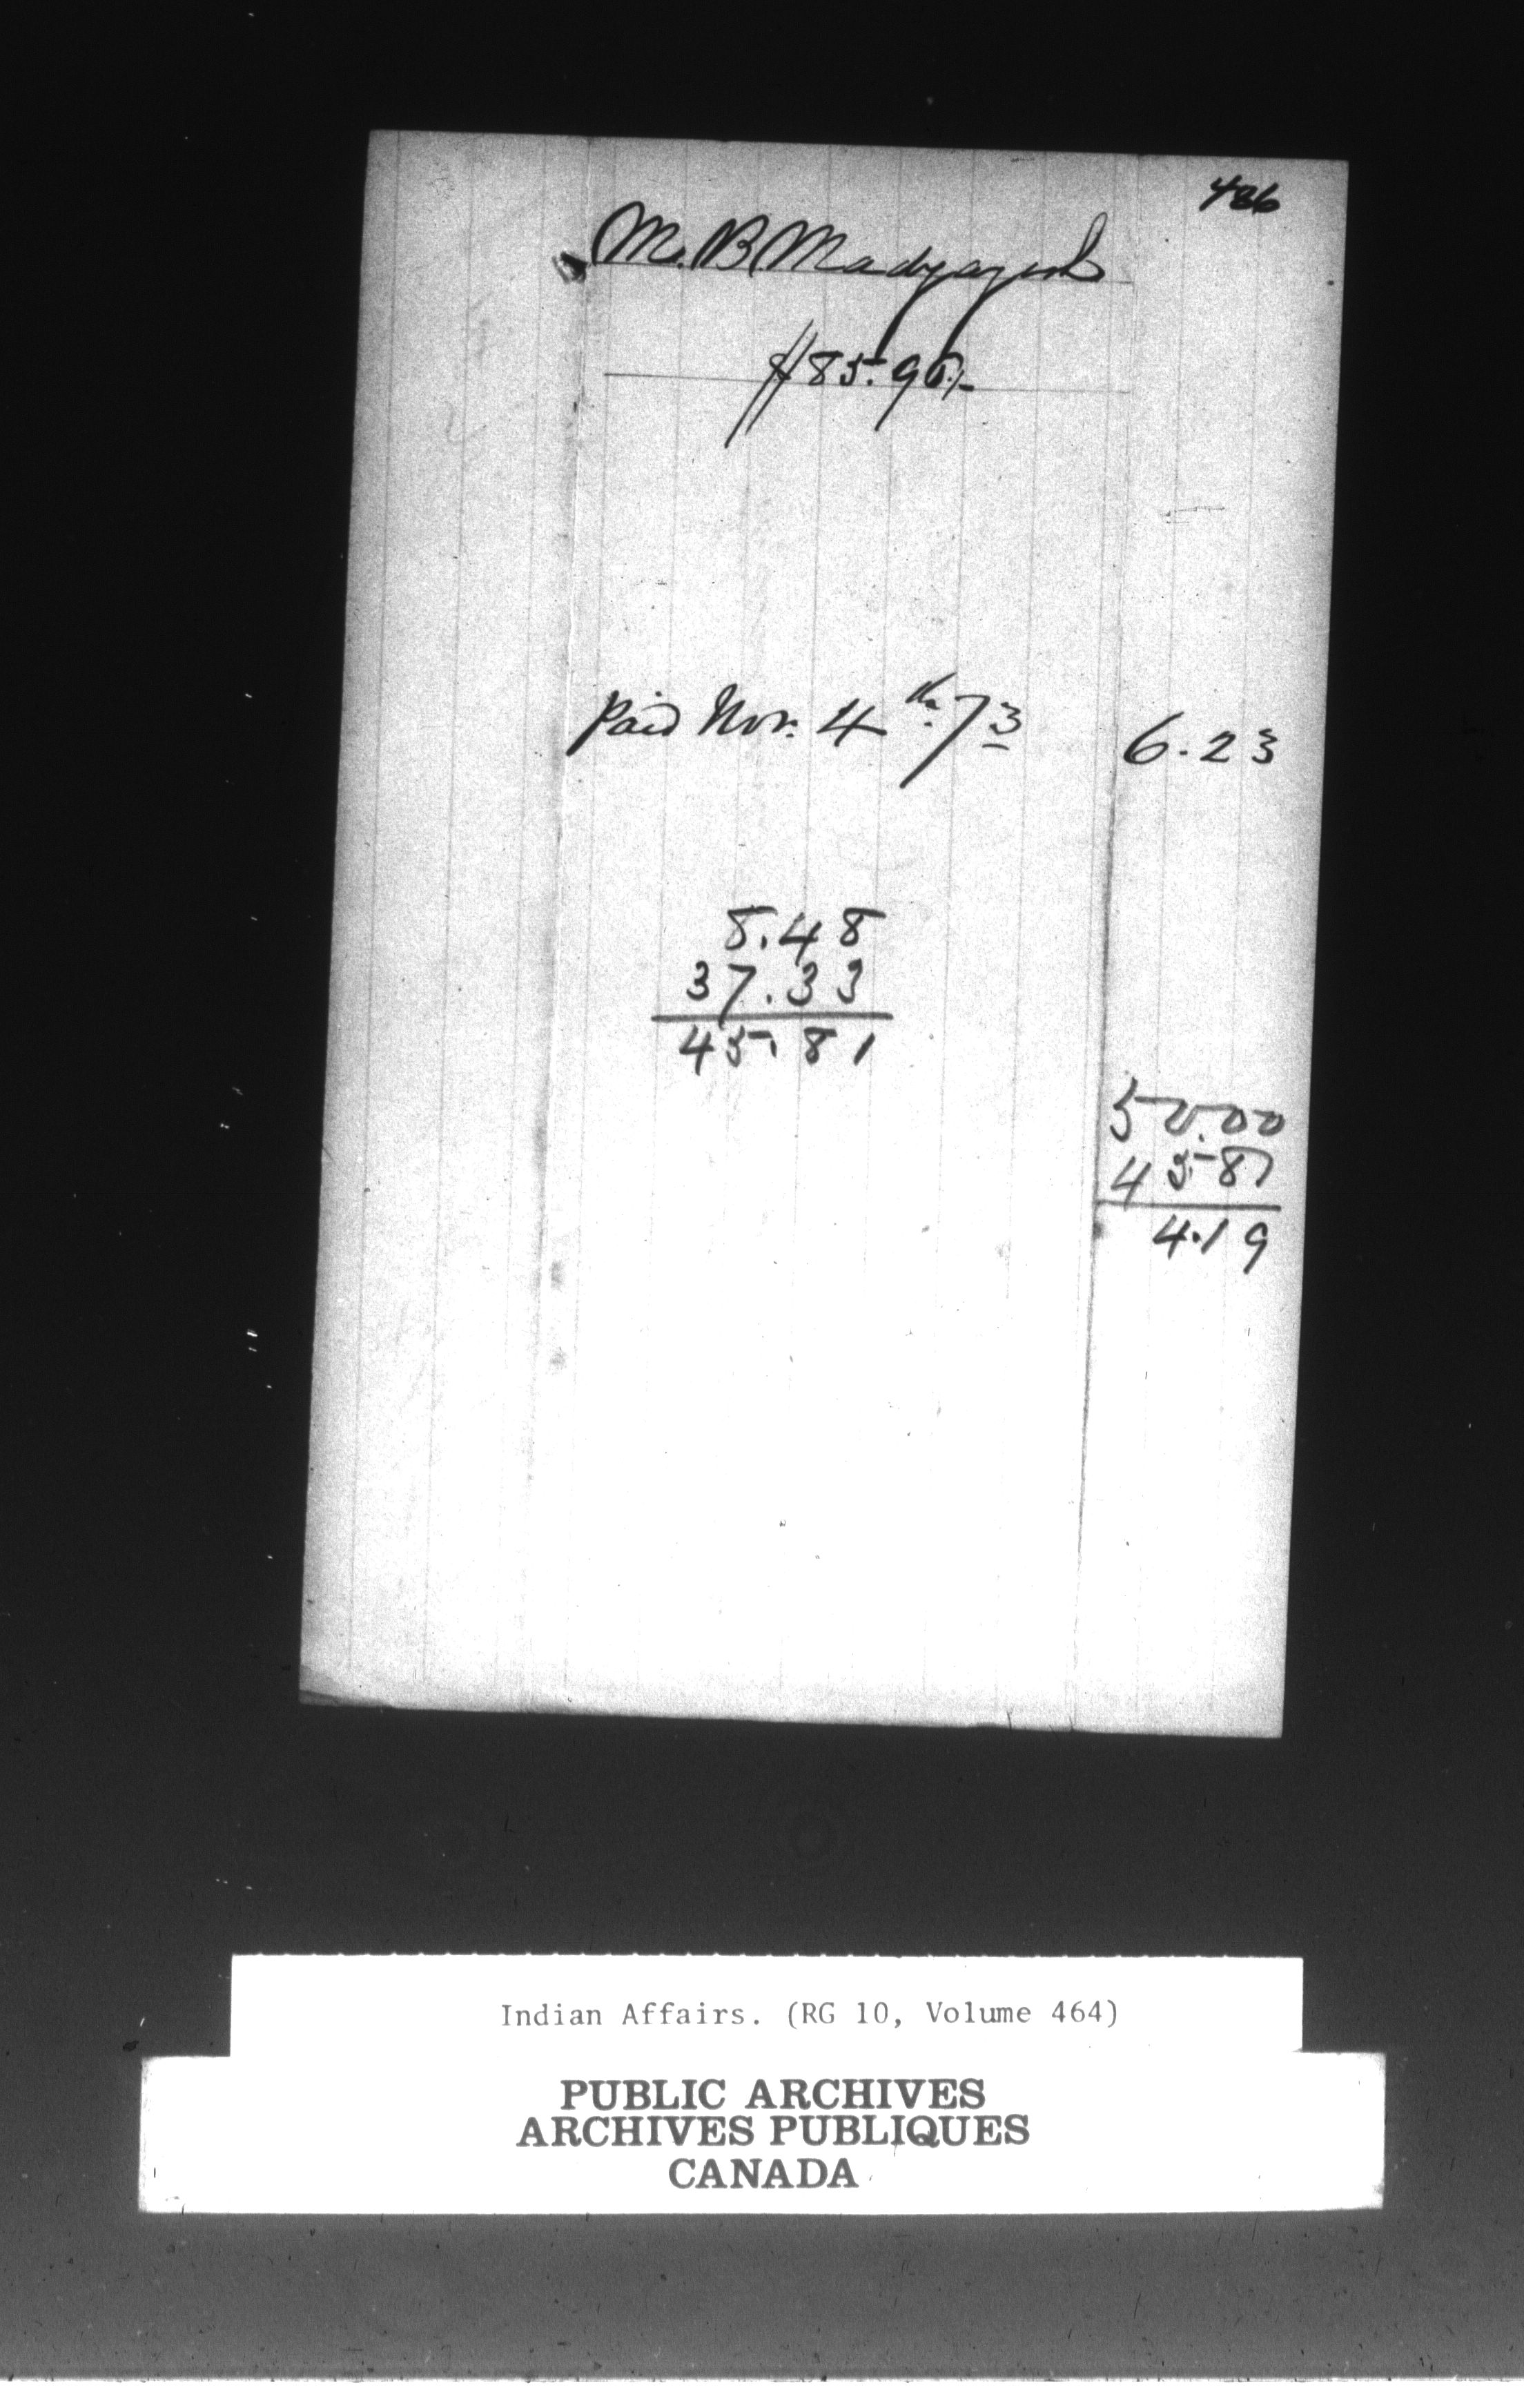 486
M. B. Madyaguk
$85.96/-
Paid Nov. 4th. 73
6.23
8.48
37.33
45.81
50.00
45.81
4.19
Indian Affairs. (RG 10, Volume 464)
PUBLIC ARCHIVES
ARCHIVES PUBLIQUES
CANADA